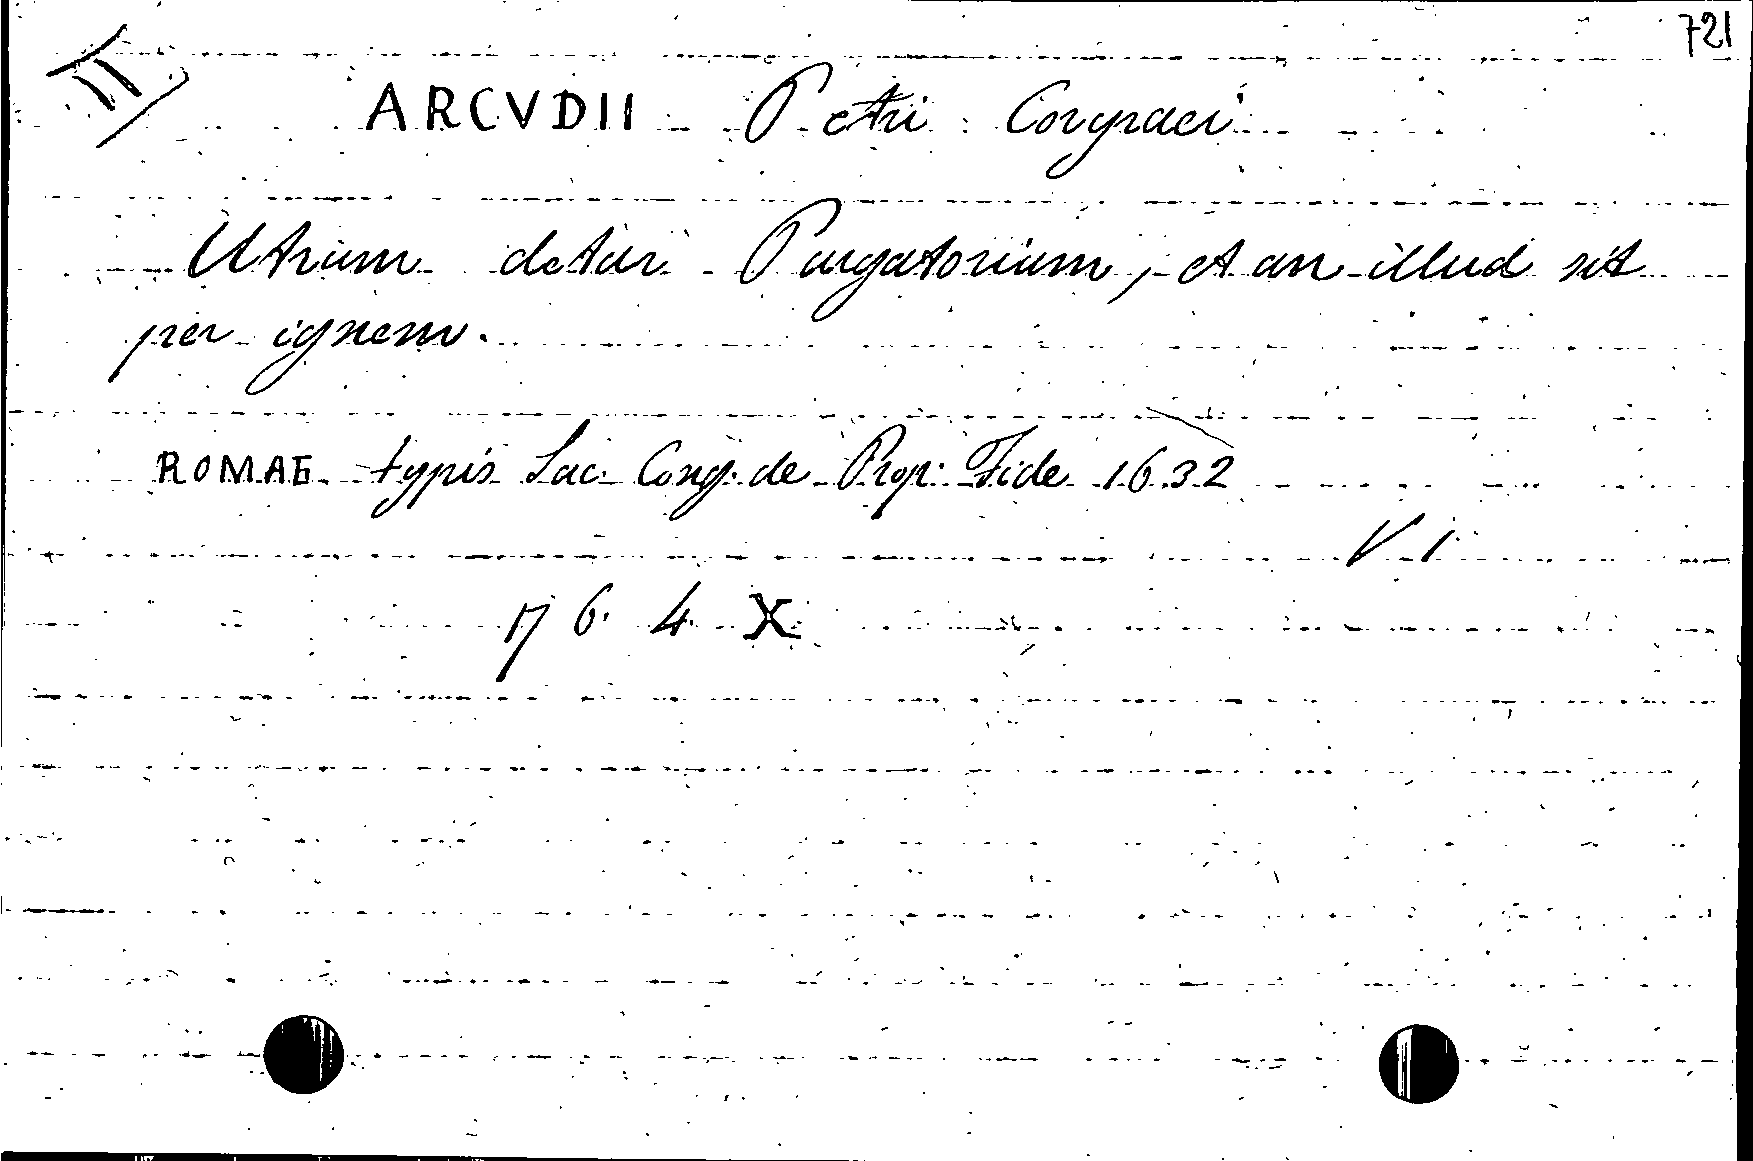 721
II
ARCVDII Petri Corcyraei
Utrum detur Purgatorium, et an illud sit
per ignem.
ROMAE typis Sac. Cong. de Prop. Fide 1632
V 1
17 6. 4. X